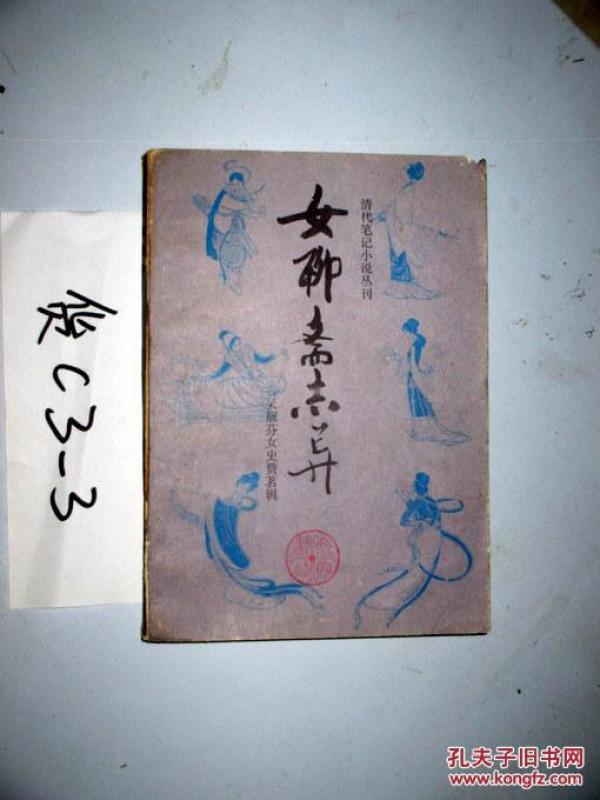 清代笔记小说丛刊
女聊斋志异
靓芬女史贾茗辑
货C3-3
孔夫子旧书网
www.kongfz.com